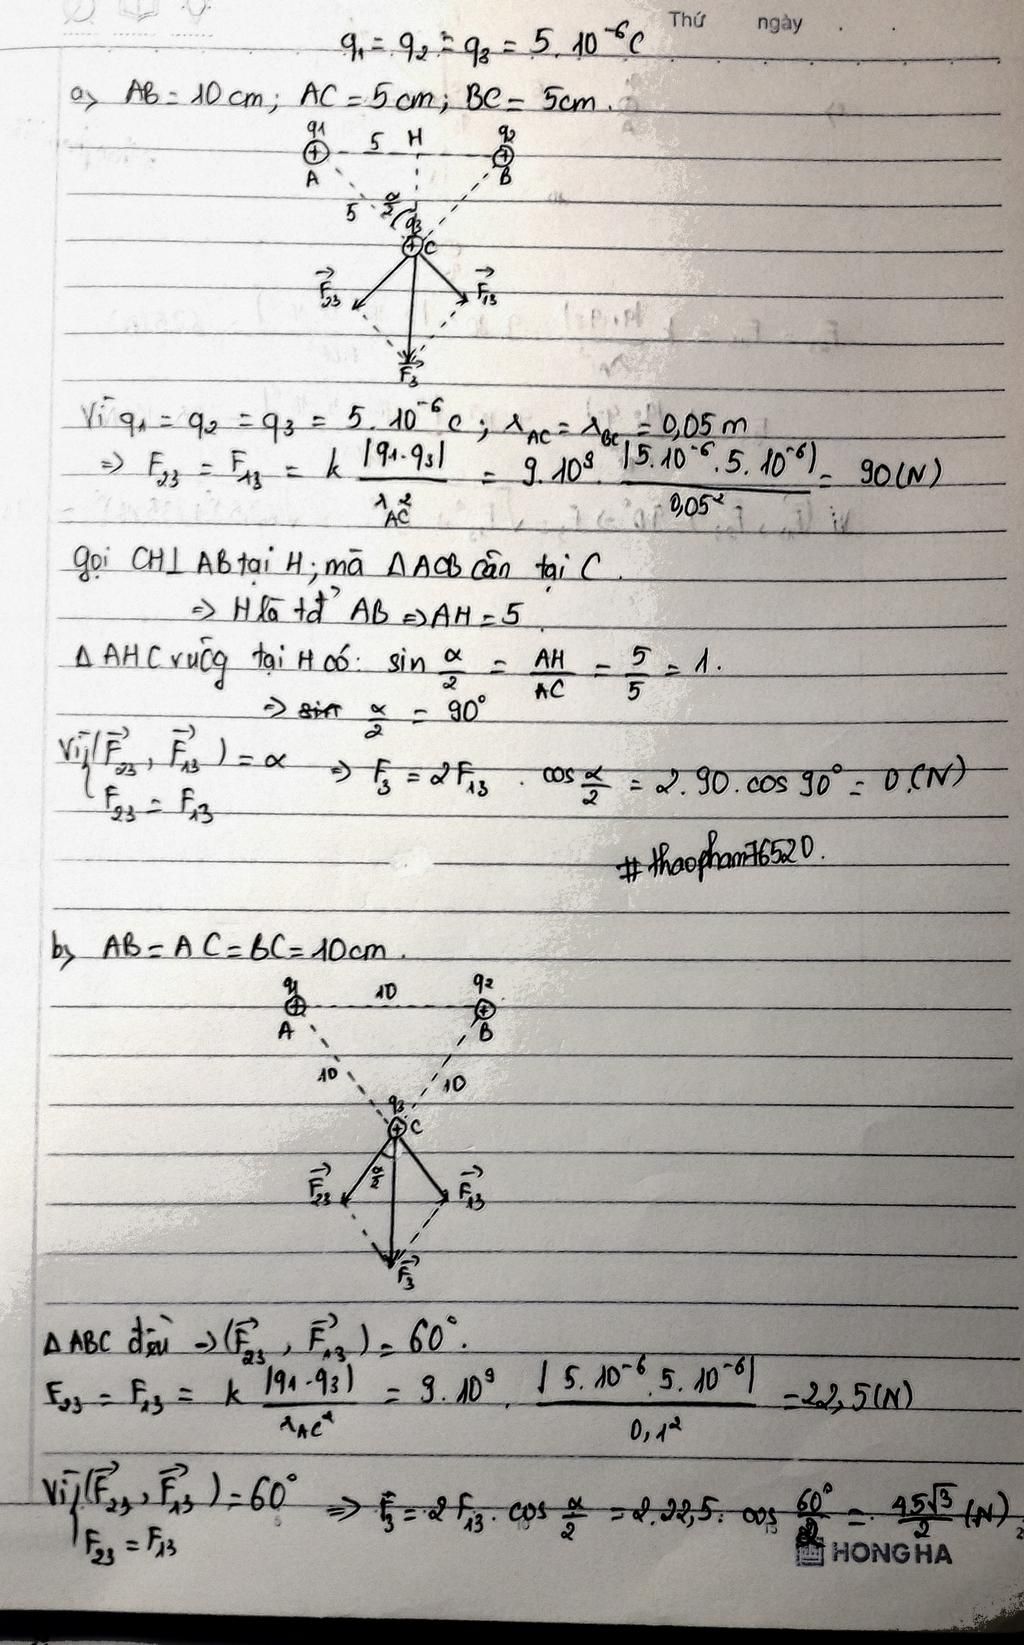 Thứ ngày
q₁ = q₂ = q₃ = 5.10⁻⁶C
a, AB = 10cm; AC = 5cm; BC = 5cm.
q1 5 H q2
A B
5 α/2 q3
C
F₂₃ F₁₃
F₃
Vì q₁ = q₂ = q₃ = 5.10⁻⁶C; r_AC = r_BC = 0,05m
=> F₂₃ = F₁₃ = k |q₁.q₃| / r_AC² = 9.10⁹. |5.10⁻⁶.5.10⁻⁶| / 0,05² = 90(N)
gọi CH⊥AB tại H; mà ΔACB cân tại C.
=> H là tđ AB => AH = 5
ΔAHC vuông tại H có: sin α/2 = AH/AC = 5/5 = 1.
=> α/2 = 90°
Vì {(F₂₃, F₁₃) = α => F₃ = 2F₁₃ . cos α/2 = 2.90.cos 90° = 0.(N)
F₂₃ = F₁₃
#thaopham76520.
b, AB = AC = BC = 10cm.
q1 10 q2
A B
10 10
q3 C
F₂₃ α/2 F₁₃
F₃
ΔABC đều -> (F₂₃, F₁₃) = 60°.
F₂₃ = F₁₃ = k |q₁.q₃| / r_AC² = 9.10⁹ . |5.10⁻⁶.5.10⁻⁶| / 0,1² = 22,5(N)
Vì {(F₂₃, F₁₃) = 60° => F₃ = 2F₁₃. cos α/2 = 2.22,5. cos 60°/2 = 45√3/2 (N)
F₂₃ = F₁₃
HONG HA